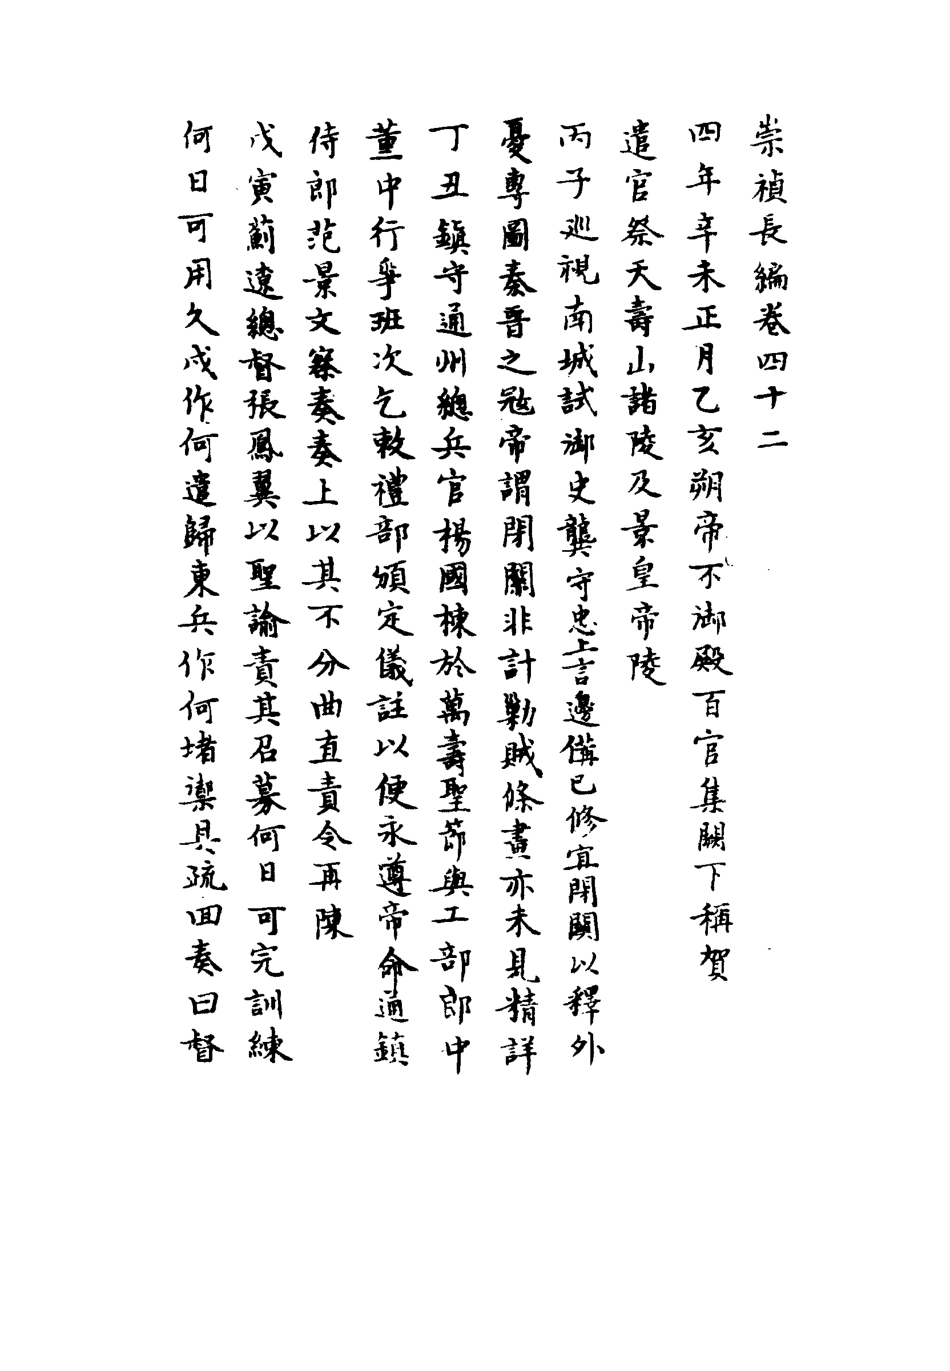 崇禎長編卷四十二
四年辛未正月乙亥朔帝不御殿百官集闕下稱賀
遣官祭天壽山諸陵及景皇帝陵
丙子巡視南城試御史龔守忠上言邊備已修宜閉關以釋外
憂專圖秦晋之冦帝謂閉關非計勦賊條畫亦未見精詳
丁丑鎮守通州總兵官楊國棟於萬壽聖節與工部郎中
董中行爭班次乞敕禮部頒定儀註以便永遵帝命通鎮
侍郎范景文察奏奏上以其不分曲直責令再陳
戊寅薊遼總督張鳳翼以聖諭責其召募何日可完訓練
何日可用久戍作何遣歸東兵作何堵禦具疏回奏曰督